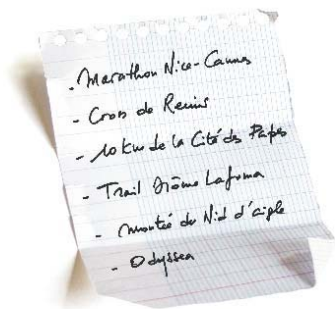 - Marathon Nice-Cannes
- Cross de Reims
- 10 km de la Cité des Papes
- Trail Drôme Lafuma
- Montée du Nid d'aigle
- Odyssea